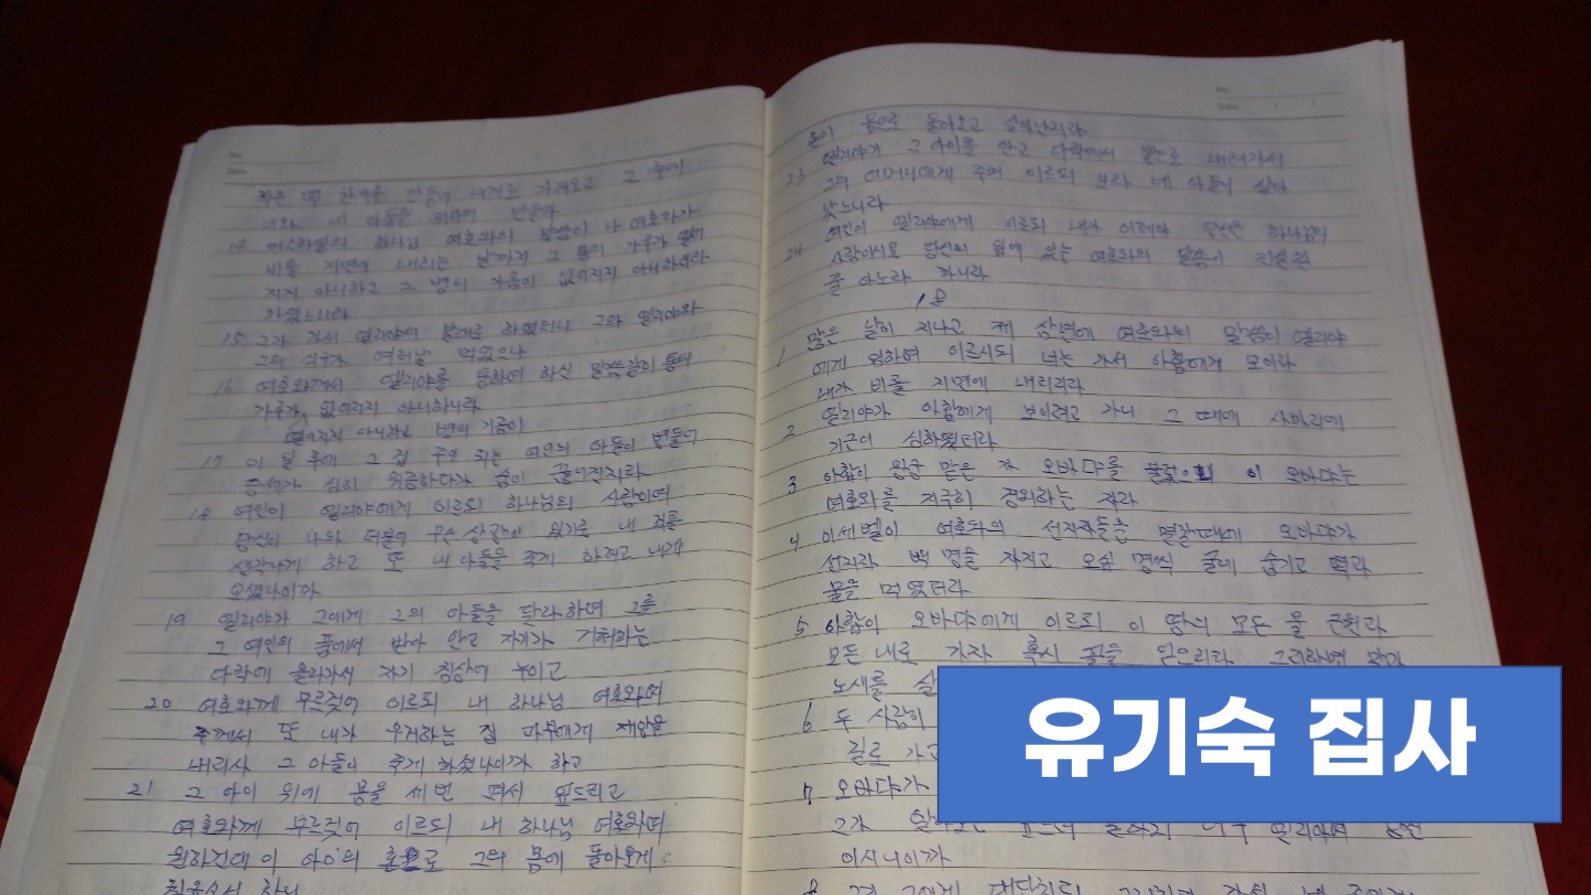 No.
Date
작은 떡 한개를 만들어 내게로 가져오고 그 후에
너와 네 아들을 위하여 만들라
14 이스라엘의 하나님 여호와의 말씀이 나 여호와가
비를 지면에 내리는 날까지 그 통의 가루가 떨어
지지 아니하고 그 병의 기름이 없어지지 아니하리라
하셨느니라
15 그가 가서 엘리야의 말대로 하였더니 그와 엘리야와
그의 식구가 여러날 먹었으나
16 여호와께서 엘리야를 통하여 하신 말씀같이 통의
가루가 없어지지 아니하니라
떨어지지 아니하고 병의 기름이
17 이 일 후에 그 집 주인 되는 여인의 아들이 병들어
증세가 심히 위중하다가 숨이 끊어진지라
18 여인이 엘리야에게 이르되 하나님의 사람이여
당신이 나와 더불어 무슨 상관이 있기로 내 죄를
생각나게 하고 또 내 아들을 죽게 하려고 내게
오셨나이까
19 엘리야가 그에게 그의 아들을 달라하여 그를
그 여인의 품에서 받아 안고 자기가 거처하는
다락에 올라가서 자기 침상에 누이고
20 여호와께 부르짖어 이르되 내 하나님 여호와여
주께서 또 내가 우거하는 집 과부에게 재앙을
내리사 그 아들이 죽게 하셨나이까 하고
21 그 아이 위에 몸을 세번 펴서 엎드리고
여호와께 부르짖어 이르되 내 하나님 여호와여
원하건대 이 아이의 혼으로 그의 몸에 돌아오게
하니
No.
Date
혼이 몸으로 돌아오고 살아난지라
23 엘리야가 그 아이를 안고 다락에서 방으로 내려가서
그의 어머니에게 주며 이르되 보라 네 아들이 살아
났느니라
24 여인이 엘리야에게 이르되 내가 이제야 당신은 하나님의
사람이시오 당신의 입에 있는 여호와의 말씀이 진실한
줄 아노라 하니라
18
1 많은 날이 지나고 제 삼년에 여호와의 말씀이 엘리야
에게 임하여 이르시되 너는 가서 아합에게 보이라
내가 비를 지면에 내리리라
2 엘리야가 아합에게 보이려고 가니 그 때에 사마리에
기근이 심하였더라
3 아합이 왕궁 맡은 자 오바댜를 이 오바댜는
여호와를 지극히 경외하는 자라
4 이세벨이 여호와의 선지자들을 멸할때에 오바댜가
선지자 백 명을 가지고 오십 명씩 굴에 숨기고 떡과
물을 먹였더라
5 아합이 오바댜에게 이르되 이 땅의 모든 물 근원과
모든 내로 가자 혹시 꼴을 얻으리라 그리하면 말과
노새를 살
6 두 사람이
길로 가고
7 오바댜가
그가
이시니이까
8
유기숙 집사